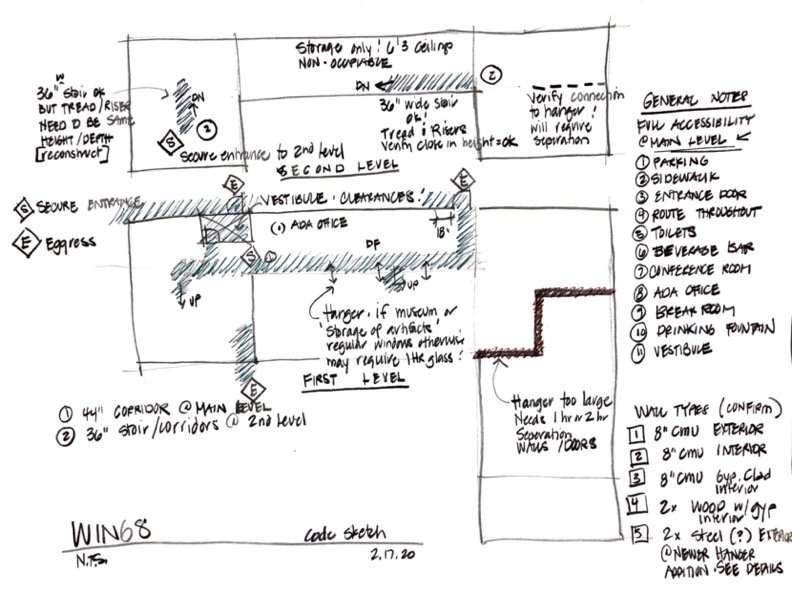 Storage only! 6'3 Ceilings
NON-OCCUPIABLE
DN
2
36" W stair ok
BUT TREAD/RISER
NEED TO BE SAME
HEIGHT/DEPTH
[reconstruct]
DN
2
S
36" wide stair
ok!
Tread & Risers
Verify close in height=ok
Verify connection
to hanger!
will require
Separation
Secure entrance to 2nd level
SECOND LEVEL
GENERAL NOTES
FULL ACCESSIBILITY
@MAIN LEVEL
1 PARKING
2 SIDEWALK
3 ENTRANCE DOOR
4 ROUTE THROUGHOUT
5 TOILETS
6 BEVERAGE BAR
7 CONFERENCE ROOM
8 ADA OFFICE
9 BREAK ROOM
10 DRINKING FOUNTAIN
11 VESTIBULE
E
E
S SECURE ENTRANCE
VESTIBULE · CLEARANCES!
E Eggress
(1) ADA OFFICE
18"
DF
S
1
UP
UP
Hanger · if museum or
storage of artifacts
regular windows otherwise
may require 1HR glass!
FIRST LEVEL
E
1 44" CORRIDOR @ MAIN LEVEL
2 36" stair/corridors @ 2nd Level
Hanger too large
Needs 1 hr or 2 hr
Separation
WALLS/DOORS
WALL TYPES (CONFIRM)
1 8" CMU EXTERIOR
2 8" CMU INTERIOR
3 8" CMU Gyp. Clad
Interior
4 2x WOOD w/gyp
Interior
5 2x Steel (?) EXTERIOR
@NEWER HANGER
ADDITION · SEE DETAILS
WIN68
Code Sketch
N.T.S.
2.17.20